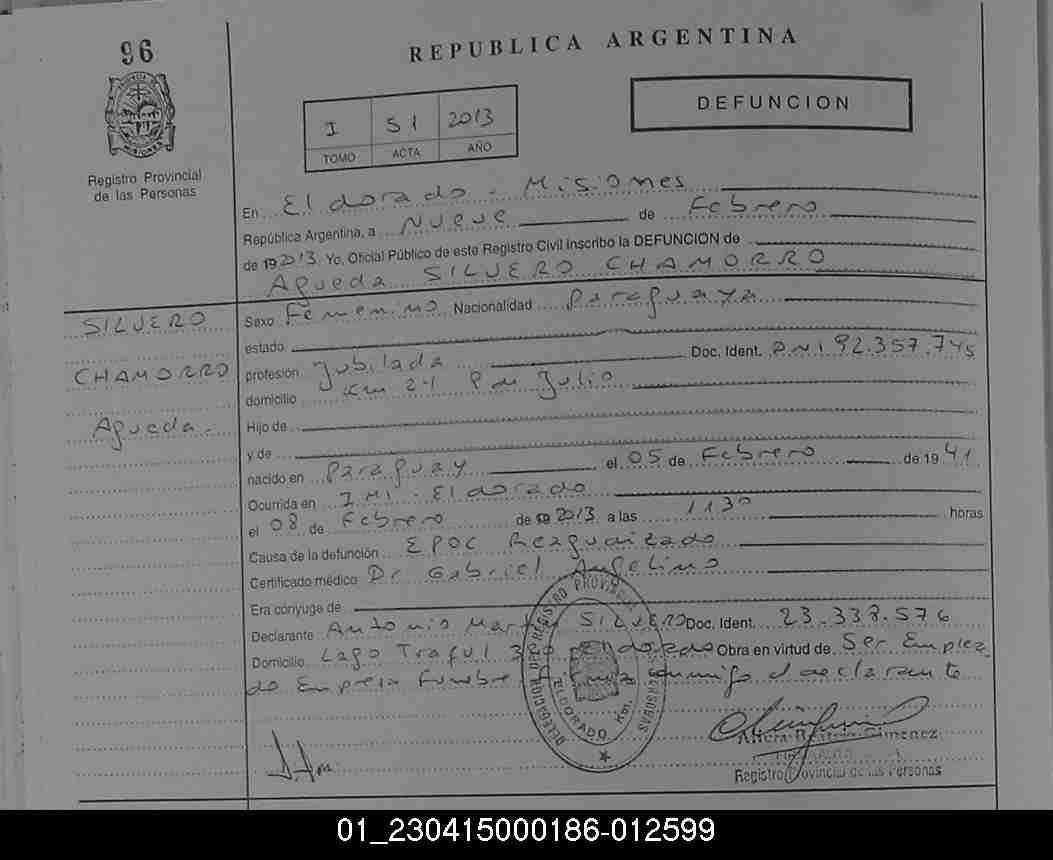 96
REPUBLICA ARGENTINA
DEFUNCION
I 51 2013
TOMO ACTA AÑO
Registro Provincial
de las Personas
En Eldorado - Misiones
República Argentina, a Nueve de Febrero
de 19 2013 Yo, Oficial Público de este Registro Civil inscribo la DEFUNCION de
Agueda SILVERO CHAMORRO
SILVERO
CHAMORRO
Agueda.
Sexo Femenino Nacionalidad Paraguaya
estado
profesión Jubilada Doc. Ident. DNI 92.357.745
domicilio Km 21 9 de Julio
Hijo de
y de
nacido en Paraguay el 05 de Febrero de 19 41
Ocurrida en IMI. Eldorado
el 08 de Febrero de 2013 a las 1130 horas
Causa de la defunción EPOC Reagudizado
Certificado médico Dr Gabriel Angelino
Era cónyuge de
Declarante Antonio SILVERO Doc. Ident. 23.338.576
Domicilio Lago Traful Eldorado Obra en virtud de Ser Emplea
do Empresa Funebre, conmigo el declarante
DELEGACION DEL REGISTRO PROVINCIAL PERSONAS
ELDORADO Km.
Alicia Gimenez
Registro Provincial de las Personas
01_230415000186-012599